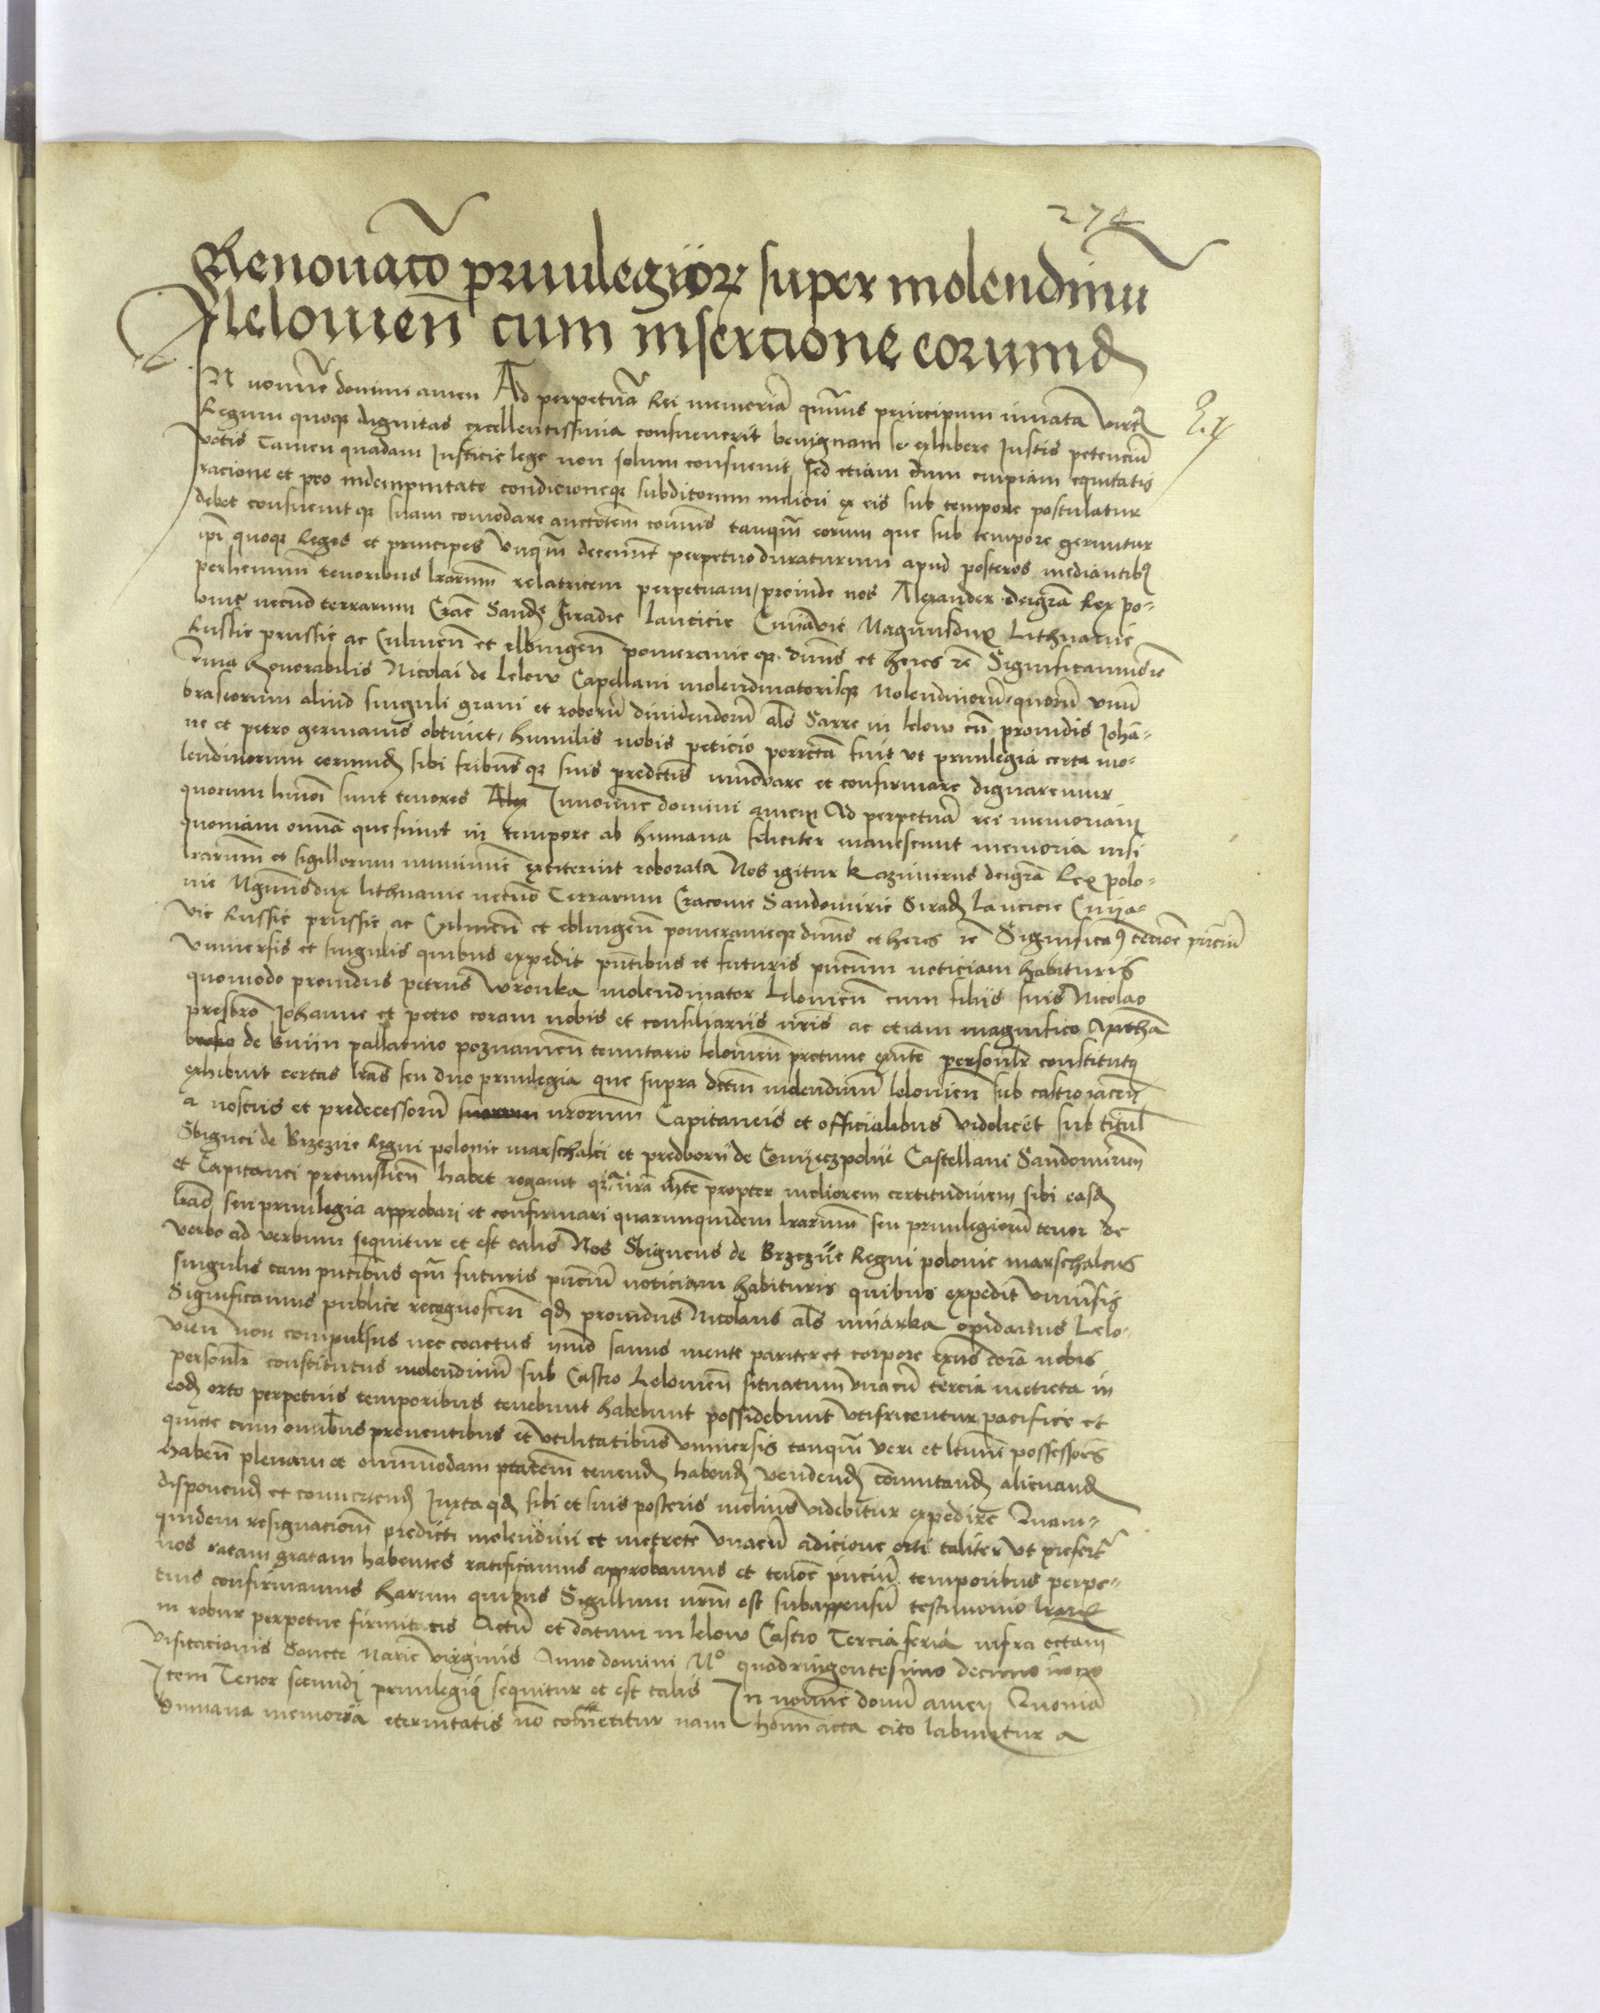 274
Renouatō priuilegiorꝝ super molendinū
lelouieñ cum insercione eorumd
In noīe domini amen Ad perpetuā Rei memoriā quāuis principum innata virt9
Ex
Regum quoqꝫ dignitas excellentissima consueuerit benignam se exhibere Justis petenciū
votis Tamen quadam Justicie lege non solum consueuit sed etiam dum cuipiam equitatis
racione et pro indempnitate condicioneqꝫ subditorum meliori ex eis sub tempore postulatur
debet consueuitqꝫ suam comodare auctōtem cōmūis tanqm̄ eorum que sub tempore geruntur
ipī quoqꝫ Reges et principes vnqm̄ decernūt perpetuo duraturum apud posteros mediantibꝫ
perhennim tenoribus lrārum relatricem perpetuam, proinde nos Alexander deigrā Rex po-
lonie necnō terrarum Craē Sandꝫ Siradie lancicie Cuiavie Magnusdux Lithuanie
Russie prussie ac Culmeñ et elbingeñ pomeranieqꝫ dūns et heres rē Significamus
honorabilis Nicolai de lelow Capellani molendinatorisqꝫ molendinorū quorū vnū
brasiorum aliud singuli grani et roborū diuidendorū als Sarre in lelow cū prouidis Johā-
ne et petro germanis obtinet, humilis nobis peticio porrecta fuit vt priuilegia certa mo-
lendinorum eorumdꝫ sibi fribusqꝫ suis predictis innovare et confirmare dignaremur
quorum huiōi sunt tenores Alex In noīe domini amen Ad perpetuā rei memoriam
quoniam omīa que fiunt in tempore ab humana feliciter euanescunt memoria nisi
lrārum et sigillorum munimīe extiterint roborata Nos igitur Kazimirus deigrā Rex polo-
nie Magnusdux lithuanie necnō Terrarum Cracouie Sandomirie Siradꝫ lancicie Cuya-
vie Russie prussie ac Culmeñ et elbingeñ pomeranieqꝫ dūns et heres rē Significaꝫ tenore pn̄ciū
vniuersis et singulis quibus expedit pn̄tibus et futuris pn̄cium noticiam habituris
quomodo prouidus petrus wronka molendinator lelouieñ cum filijs suis Nicolao
presbrō Johanne et petro coram nobis et consiliariis nris ac etiam magnifico
de bnin pallatino poznanieñ tenutario lelouieñ protunc exn̄te personlr constitutꝫ
exhibuit certas lrās seu duo priuilegia que supra dictm̄ molendinū lelouien sub castro iaceñ
a nostris et predecessorū suorum nrorum Capitaneis et officialibus videlicet sub titul
Sbignei de Brzezie Regni polonie marschalci et predborii de Conyeczpolie Castellani Sandomirieñ
et Capitanei premislieñ habet rogauit propter meliorem certitudinem sibi easdꝫ
lrās seu priuilegia approbari et confirmari quarumquidem lrārum seu priuilegiorū tenor de
verbo ad verbum sequitur et est talis Nos Sbigneus de Brzezie Regni polonie marschalcus
singulis tam pn̄tibus qm̄ futuris pn̄ciū noticiam habituris quibus expedit vniūsis
Significamus publice recognosceñ qdꝫ prouidus Nicolaus als opidanus Lelo-
vien non compulsus nec coactus ymō sanus mente pariter et corpore exn̄s corā nobis
personlr constitutus molendinū sub Castro lelouieñ situatum vnacū tercia metreta in
eodꝫ orto perpetuis temporibus tenebunt habebunt possidebunt vtifruentur pacifice et
quiete cum omībus prouentibus et vtilitatibus vniuersis tanqm̄ veri et ltimī possessores
habeñ plenam et omnimodam ptātem tenendꝫ habendꝫ vendendꝫ cōmutandꝫ alienandꝫ
disponendꝫ et conuertendꝫ Juxta qdꝫ sibi et suis posteris melius videbitur expedire Quam-
quidem resignacionē predicti molendini et metrete vnacū adicione orti taliter vt prefertꝛ
nos ratam gratam habentes ratificamus approbamus et tenore pn̄ciū temporibus perpe-
tuis confirmamus harum quibus Sigillum nrm̄ est subappensū testimonio lrārꝝ
in robur perpetue firmitatis Actū et datum in lelow Castro Tercia feria infra octam
visitacionis Sancte Marie virginis Anno domini Mo quadringentesimo decimo nono
Item Tenor secundi priuilegij sequitur et est talis In noīe domī amen Quoniā
humana memoria eternitatis nō cometitur nam hoīm acta cito labuntur a